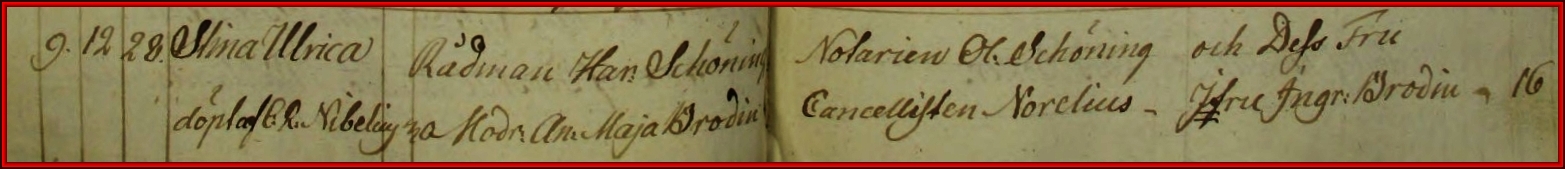 9. 12 28. Stina Ulrica Rådman Han: Schöning Notarien Ol: Schöning och Dess Fru
döpt af E. R. Nibelius Modr: An: Maja Brodin Cancellisten Norelius - Jfru Ingr: Brodin - 16